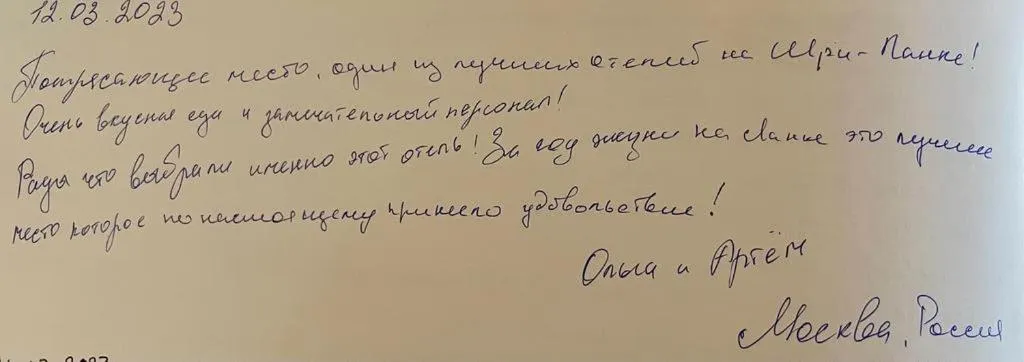 12.03.2023
Потрясающее место, один из лучших отелей на Шри-Ланке!
Очень вкусная еда и замечательный персонал!
Рады что выбрали именно этот отель! За год жизни на Ланке это лучшее
место которое по настоящему принесло удовольствие!
Ольга и Артём
Москва, Россия